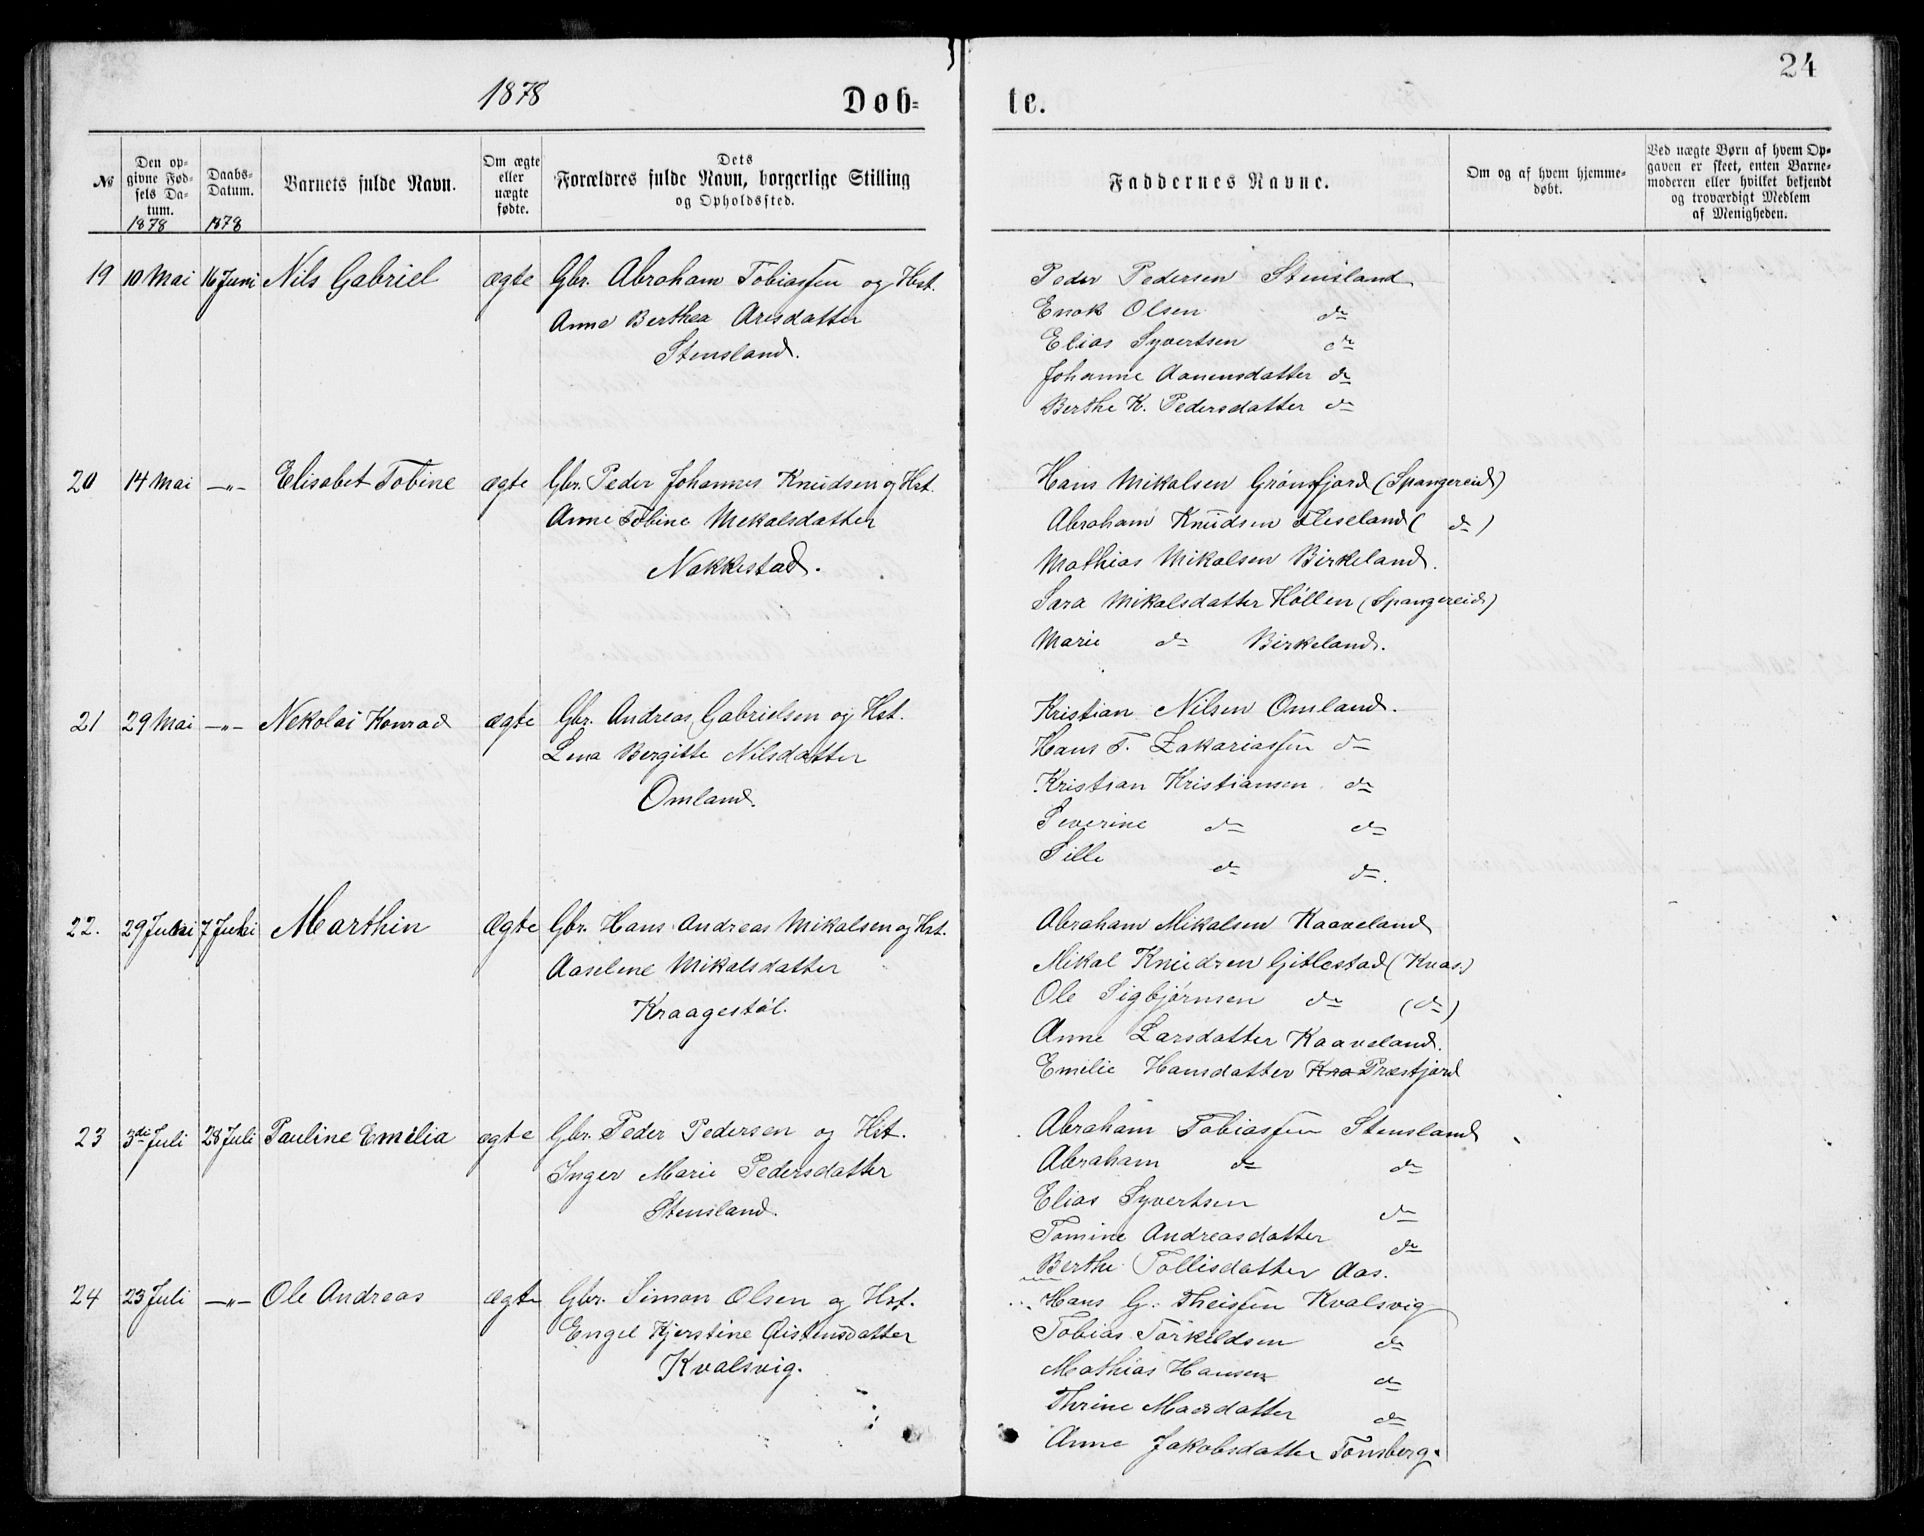 24
1878
Døb-
te.
№
Den opgivne Fødsels Datum.
1878
Daabs-Datum.
1878
Barnets fulde Navn.
Om ægte eller uægte fødte.
Dets Forældres fulde Navn, borgerlige Stilling og Opholdssted.
Faddernes Navne.
Om og af hvem hjemmedøbt.
Ved uægte Børn af hvem Opgaven er skeet, enten Barnemoderen eller hvilket bekjendt og troværdigt Medlem af Menigheden.
19 10 Mai 16 Juni Nils Gabriel ægte Gbr. Abraham Tobiassen og Hst.
Anne Berthea Aresdatter
Stensland.
Peder Pedersen Stensland
Enok Olsen do
Elias Syvertsen do
Johanne Aanensdatter do
Berthe K. Pedersdatter do
20 14 Mai —"— Elisabet Tobine ægte Gbr. Peder Johannes Knudsen og Hst.
Anne Tobine Mekalsdatter
Nakkestad.
Hans Mikalsen Grønsfjord (Spangereid)
Abraham Knudsen Fleseland ( do )
Mathias Mikalsen Birkeland.
Sara Mikalsdatter Høllen (Spangereid)
Marie do Birkeland.
21 29 Mai —"— Nekolai Konrad ægte Gbr. Andreas Gabrielsen og Hst.
Lena Bergitte Nilsdatter
Omland.
Kristian Nilsen Omland.
Hans T. Zakariassen do
Kristian Kristiansen do
Severine do do
Sille do do.
22. 29 7 Marthin Ægte Gbr. Hans Andreas Mikalsen og Hst.
Aaselene Mikalsdatter
Kraagestøl.
Abraham Mikalsen Kaaveland
Mikal Knudsen Gitlestad (Kvas)
Ole Sigbjørnsen do (do)
Anne Larsdatter Kaaveland.
Emilie Hansdatter Kra Præstfjord
23 3die Juli 28 Juli Pauline Emelia ægte Gbr. Peder Pedersen og Hst.
Inger Marie Pedersdatter
Stensland.
Abraham Tobiassen Stensland
Abraham do do
Elias Syvertsen do
Tomine Andreasdatter do
Berthe Tollisdatter Aas.
24 23 Juli —"— Ole Andreas ægte Gbr. Simon Olsen og Hst.
Engel Kjerstine Qistensdatter
Kvalsvig.
Hans G. Theissen Kvalsvig
Tobias Torkildsen do
Mathias Hansen do
Thrine Maasdatter do
Anne Jakobsdatter Tonsberg.